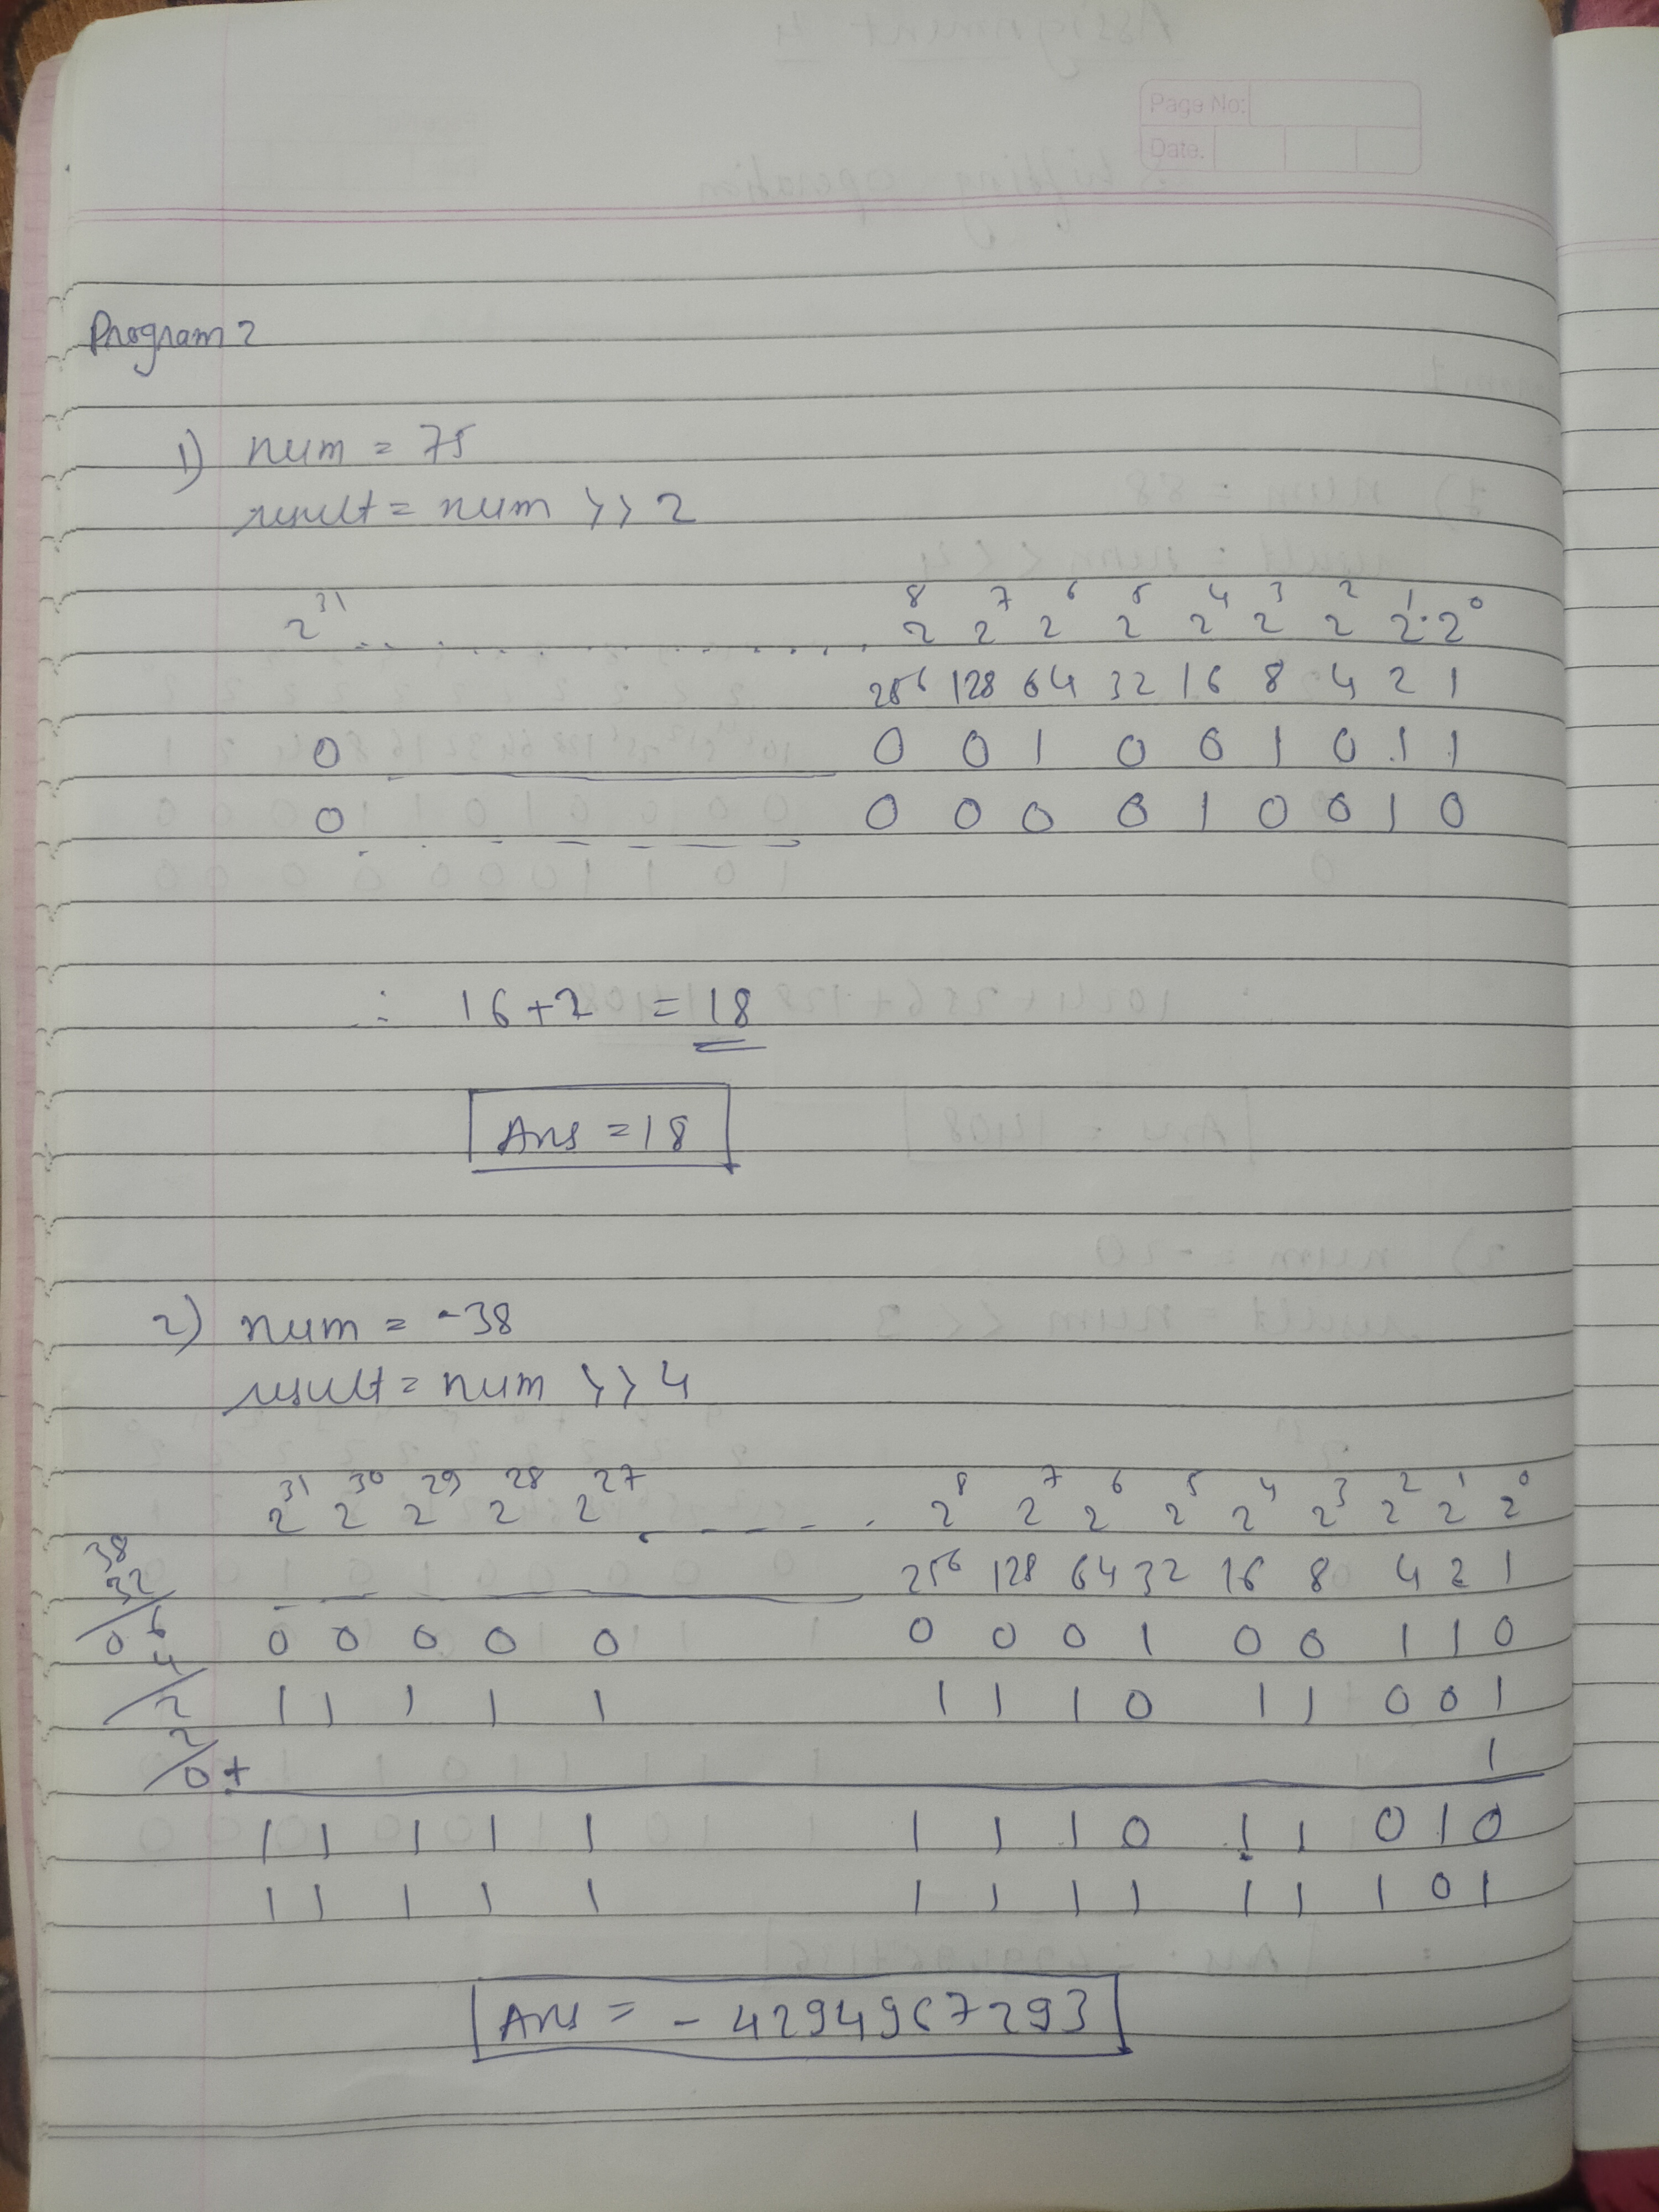 Page No:
Date.
Program 2
1) num = 75
result = num >> 2
2^31 . . . . . . . . . . . 2^8 2^7 2^6 2^5 2^4 2^3 2^2 2^1 2^0
256 128 64 32 16 8 4 2 1
0 0 0 1 0 0 1 0 1 1
0 0 0 0 0 1 0 0 1 0
∴ 16+2 = 18
Ans = 18
2) num = -38
result = num >> 4
2^31 2^30 2^29 2^28 2^27 . - - - . 2^8 2^7 2^6 2^5 2^4 2^3 2^2 2^1 2^0
38
32 256 128 64 32 16 8 4 2 1
06 0 0 0 0 0 0 0 0 1 0 0 1 1 0
4
2 1 1 1 1 1 1 1 1 0 1 1 0 0 1
2 1
0 +
1 1 1 1 1 1 1 1 0 1 1 0 1 0
1 1 1 1 1 1 1 1 1 1 1 1 0 1
Ans = - 4294967293